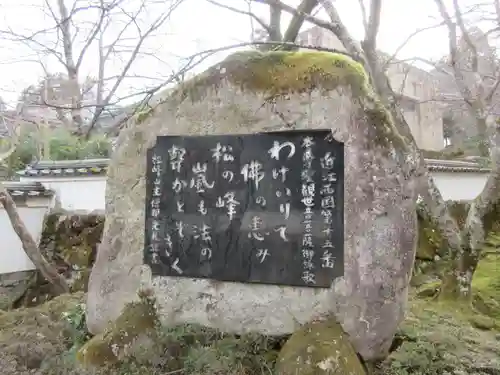 近江西国第十五番
本尊聖観世音菩薩御詠歌
わけいりて
佛の恵み
松の峰
嵐も法の
聲かとぞきく
松峰山主